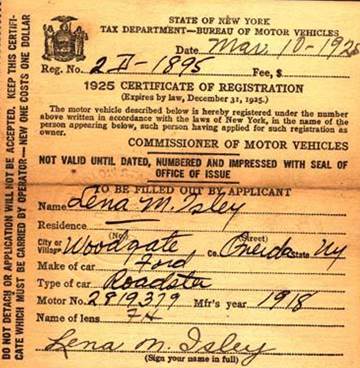 STATE OF NEW YORK
TAX DEPARTMENT—BUREAU OF MOTOR VEHICLES
Date Mar. 10-1925
Reg. No. 2 II-1895 Fee, $
1925 CERTIFICATE OF REGISTRATION
(Expires by law, December 31, 1925.)
The motor vehicle described below is hereby registered under the number
above written in accordance with the laws of New York, in the name of the
person appearing below, such person having applied for such registration as
owner.
COMMISSIONER OF MOTOR VEHICLES
NOT VALID UNTIL DATED, NUMBERED AND IMPRESSED WITH SEAL
OF OFFICE OF ISSUE
TO BE FILLED OUT BY APPLICANT
Name Lena M. Isley
Residence
(No.) (Street)
City or Village Woodgate Co. Oneida State Ny
Make of car Ford
Type of car Roadster
Motor No. 2819379 Mfr's year 1918
Name of lens
Lena M. Isley
(Sign your name in full)
DO NOT DETACH OR APPLICATION WILL NOT BE ACCEPTED. KEEP THIS CERTIFI-
CATE WHICH MUST BE CARRIED BY OPERATOR—NEW ONE COSTS ONE DOLLAR